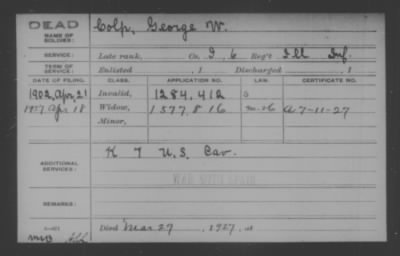 DEAD
NAME OF SOLDIER: Colp, George W.
SERVICE: Late rank, Co. I, 6 Reg't Ill Inf.
TERM OF SERVICE: Enlisted , 1 Discharged , 1
DATE OF FILING. CLASS. APPLICATION NO. LAW. CERTIFICATE NO.
1902, Apr. 21 Invalid, 1284,412 S
1927 Apr 18 Widow, 1577816 A 7-11-27
Minor,
ADDITIONAL SERVICES: K 7 U.S. Cav.
WAR WITH SPAIN
REMARKS:
Died Mar 27, 1927, at